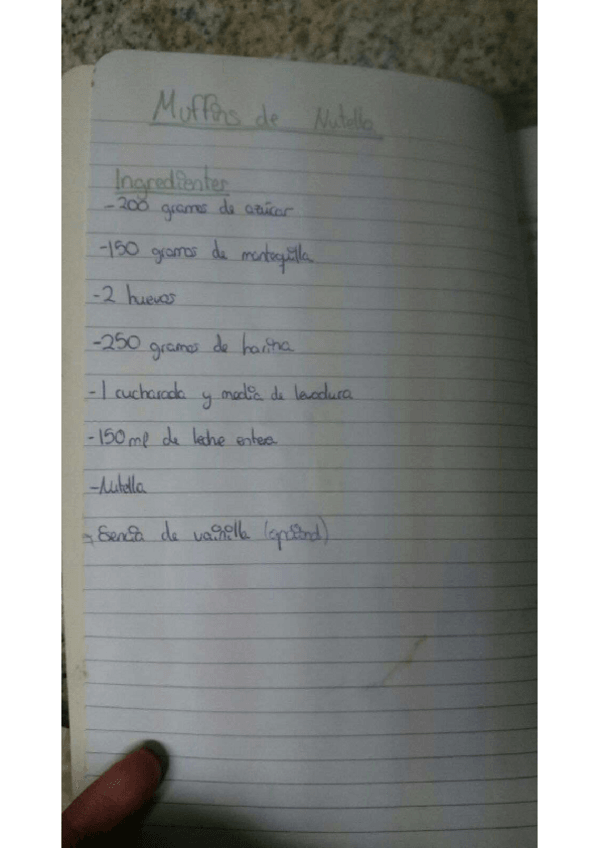 Muffins de Nutella
Ingredientes
-200 gramos de azúcar
-150 gramos de mantequilla
-2 huevos
-250 gramos de harina
-1 cucharada y media de levadura
-150 ml de leche entera
-Nutella
-Esencia de vainilla (opcional)